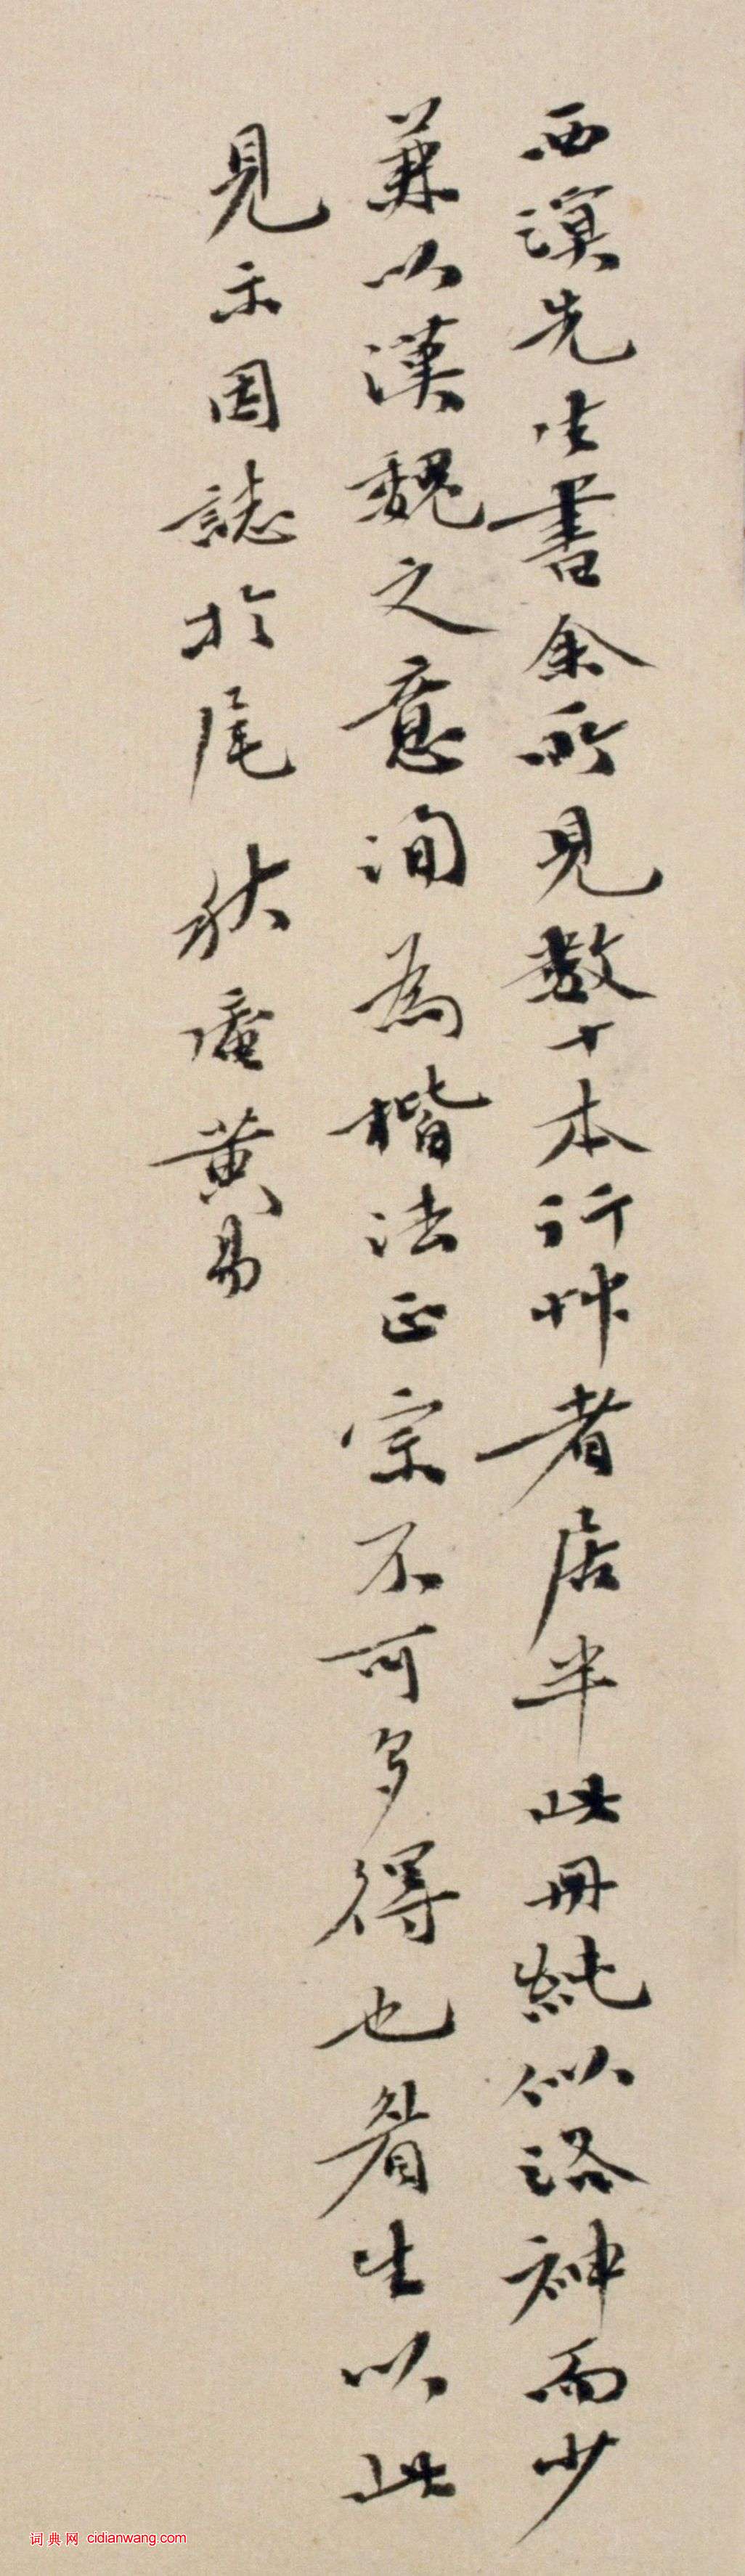 西溟先生書余所見數十本行艸者居半此冊純似洛神而少
兼以漢魏之意洵為楷法正宗不可多得也眉生以此
見示因誌於尾 秋盦黃易
词典网 cidianwang.com